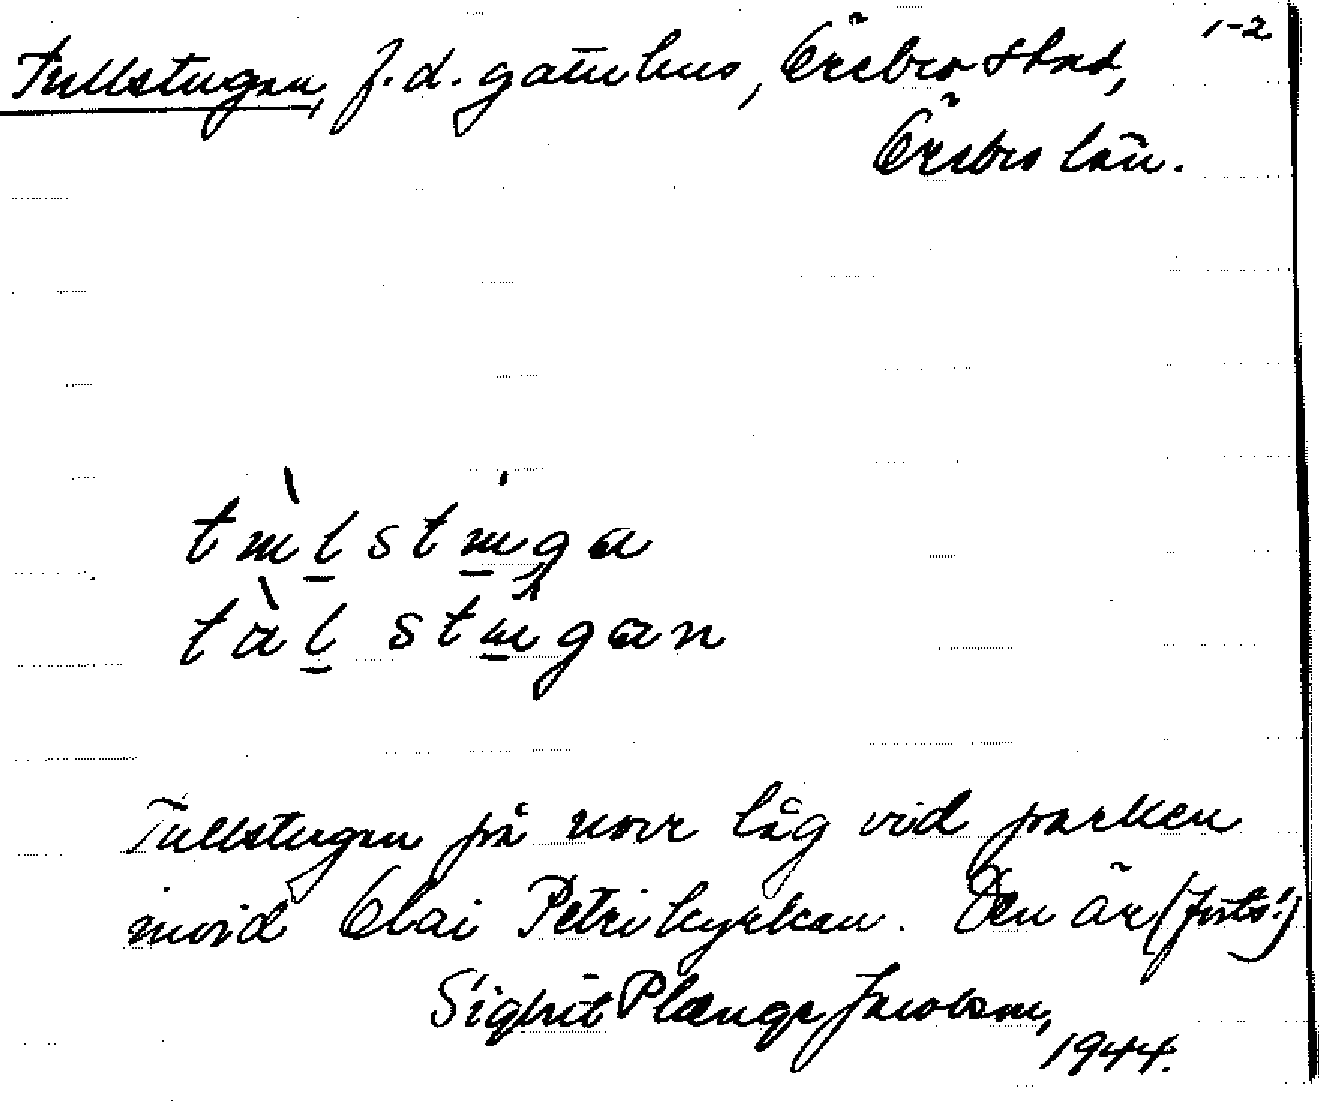 1-2
Tullstugan, f.d. gatuhus, Örebro stad,
Örebro län.
tùlstuga
tàl stugan
Tullstugan på norr låg vid parken
invid Olai Petri kyrkan. Den är (forts.!)
Sigbrit Plænge Jacobson,
1944.